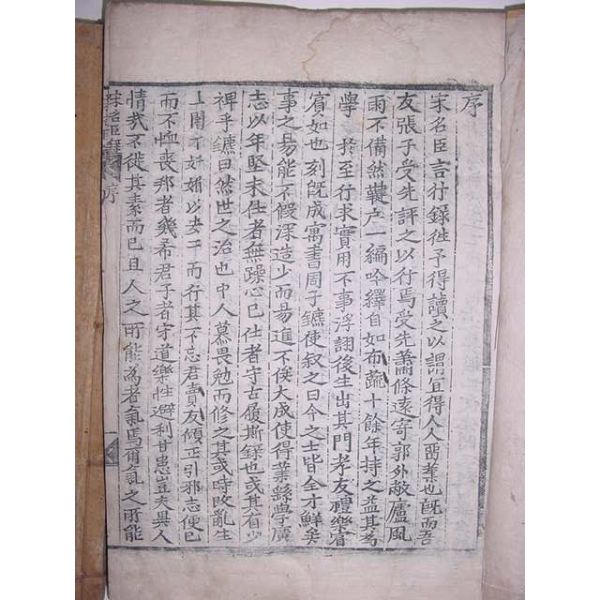 序
宋名臣言行錄往予得讀之以謂宜得人人習業也旣而吾
友張子受先評之以行焉受先蕭條遠寄郭外敝廬風
雨不備然鞬戶一編吟繹自如布蔬十餘年持之益其為
學 至行求實用不事浮詡後生出其門孝友禮樂
賓如也刻旣成寓書周子鑣使叙之曰今之士皆全才鮮矣
事之易能不假深造少而易進不俟大成使得葉縣學廣
志以年堅未仕者無躁心已仕者守古履斯錄也或其有少
裨乎鑣曰然世之治也中人慕畏勉而修之其或時政亂生
上困于奸媚以妻子而行其不忘君責友傾正引邪志便已
而不恤喪邦者幾希君子者守道樂性避利甘患豈夫異人
情我不徙其素而已且人之所能為者氣焉爾氣之所能
宋名臣 序